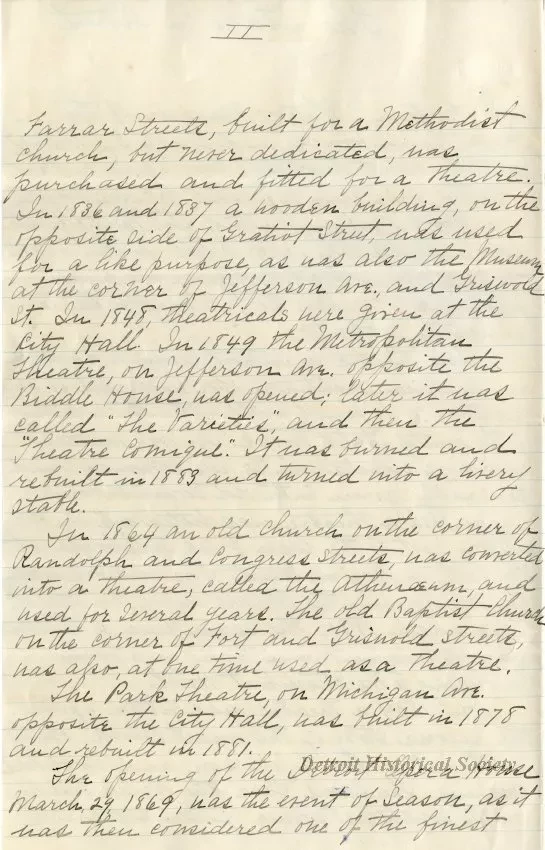 II
Farrar Streets, built for a Methodist
church, but never dedicated, was
purchased and fitted for a theatre.
In 1836 and 1837 a wooden building, on the
opposite side of Gratiot Street, was used
for a like purpose, as was also the Museum
at the corner of Jefferson Ave, and Griswold
St. In 1848, theatricals were given at the
City Hall. In 1849 the Metropolitan
Theatre, on Jefferson Ave. opposite the
Biddle House, was opened; later it was
called "The Varieties", and then the
"Theatre Comique". It was burned and
rebuilt in 1883 and turned into a livery
stable.
In 1864 an old church on the corner of
Randolph and Congress Streets, was converted
into a theatre, called the Athenæum, and
used for several years. The old Baptist Church
on the corner of Fort and Griswold streets,
was also, at one time used as a Theatre.
The Park Theatre, on Michigan Ave.
opposite the City Hall, was built in 1878
and rebuilt in 1881.
Detroit Historical Society
The opening of the Detroit Opera House
March 29 1869, was the event of Season, as it
was then considered one of the finest